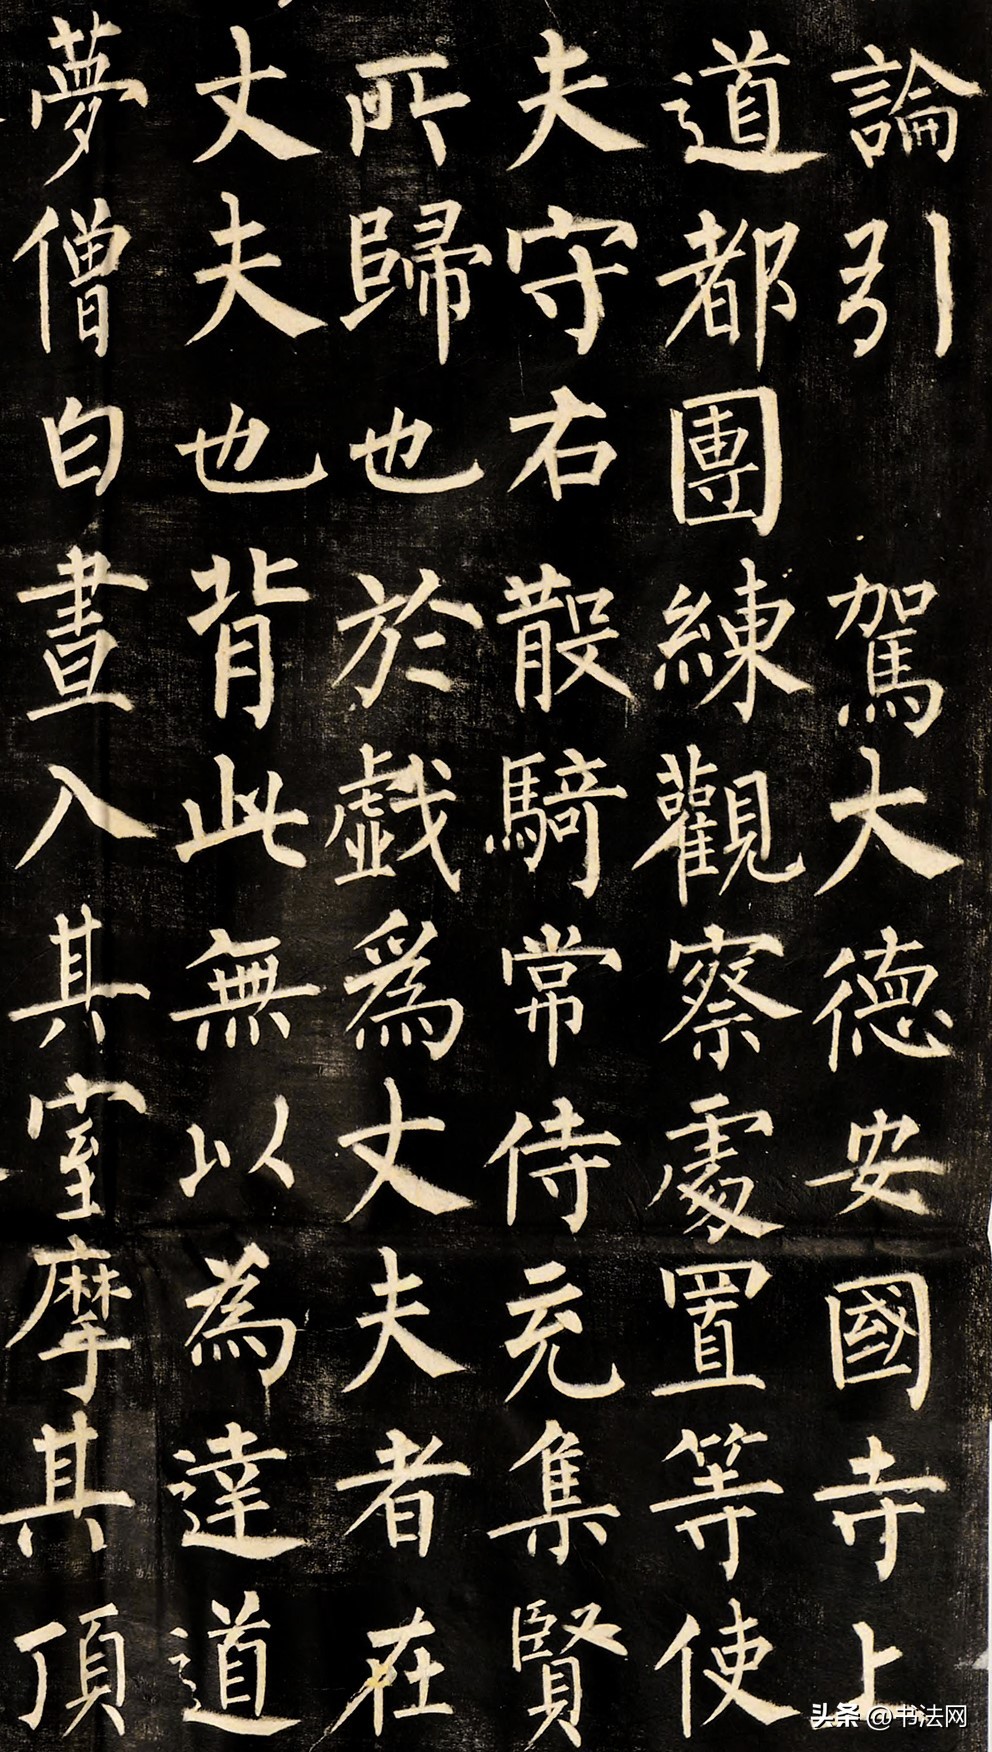 論引 駕大德安國寺上
道都團練觀察處置等使
夫守右散騎常侍充集賢
所歸也於戲爲丈夫者在
丈夫也背此無以為達道
夢僧白晝入其室摩其頂
头条 @书法网